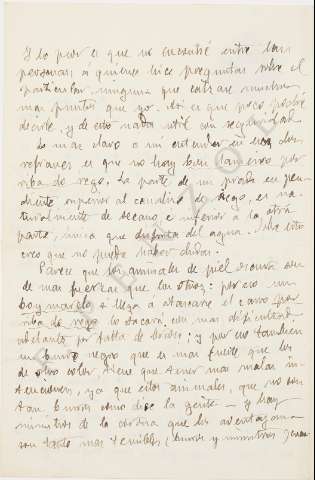 Y lo peor es que no encontré entre las
personas, á quienes hice preguntas sobre el
particular ninguna que calzase muchos
mas puntos que yo. Así es que poco podré
decirle y de esto nada util con seguridad.
Lo mas claro a mi entender en los dos
refranes es que no hay bon lameiro por
riba do rego. La parte de un prado en pen
diente superior al caudal de riego, es na-
turalmente de secano, e inferior a la otra
parte, única que disfruta del agua. Sobre esto
creo que no puede haber duda.
Parece que los animales de piel oscura son
de mas fuerza que los otros; por eso un
boy marelo, si llega a atascarse el carro por
riba do rego lo sacará con mas dificultad
adelante por falta de bríos; y por eso tambien
un burro negro que es mas fuerte que los
de otro color tiene que tener mas malas in
tenciones, ya que estos animales, que no son
tan burros como dice la gente — y hay
ministros de la corona que les aventajan —
son tanto mas temibles (burros y ministros